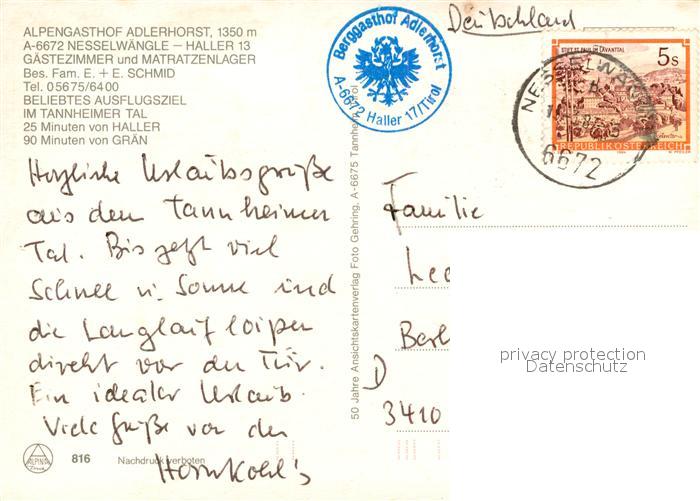 ALPENGASTHOF ADLERHORST, 1350 m
A-6672 NESSELWÄNGLE – HALLER 13
GÄSTEZIMMER und MATRATZENLAGER
Bes. Fam. E. + E. SCHMID
Tel. 05675/6400
BELIEBTES AUSFLUGSZIEL
IM TANNHEIMER TAL
25 Minuten von HALLER
90 Minuten von GRÄN
Herzliche Urlaubsgrüße
aus dem Tannheimer
Tal. Bis jetzt viel
Schnee u. Sonne und
die Langlaufloipen
direkt vor der Tür.
Ein idealer Urlaub.
Viele Grüße von den
Hornkohl's
ALPINA
816
Nachdruck verboten
50 Jahre Ansichtskartenverlag Foto Gehring, A-6675 Tannheim/Tirol
Berggasthof Adlerhorst
A-6672 Haller 17/Tirol
Deutschland
STIFT ST. PAUL IM LAVANTTAL
5s
REPUBLIK ÖSTERREICH
6672
Familie
Berl
D
3410
privacy protection
Datenschutz